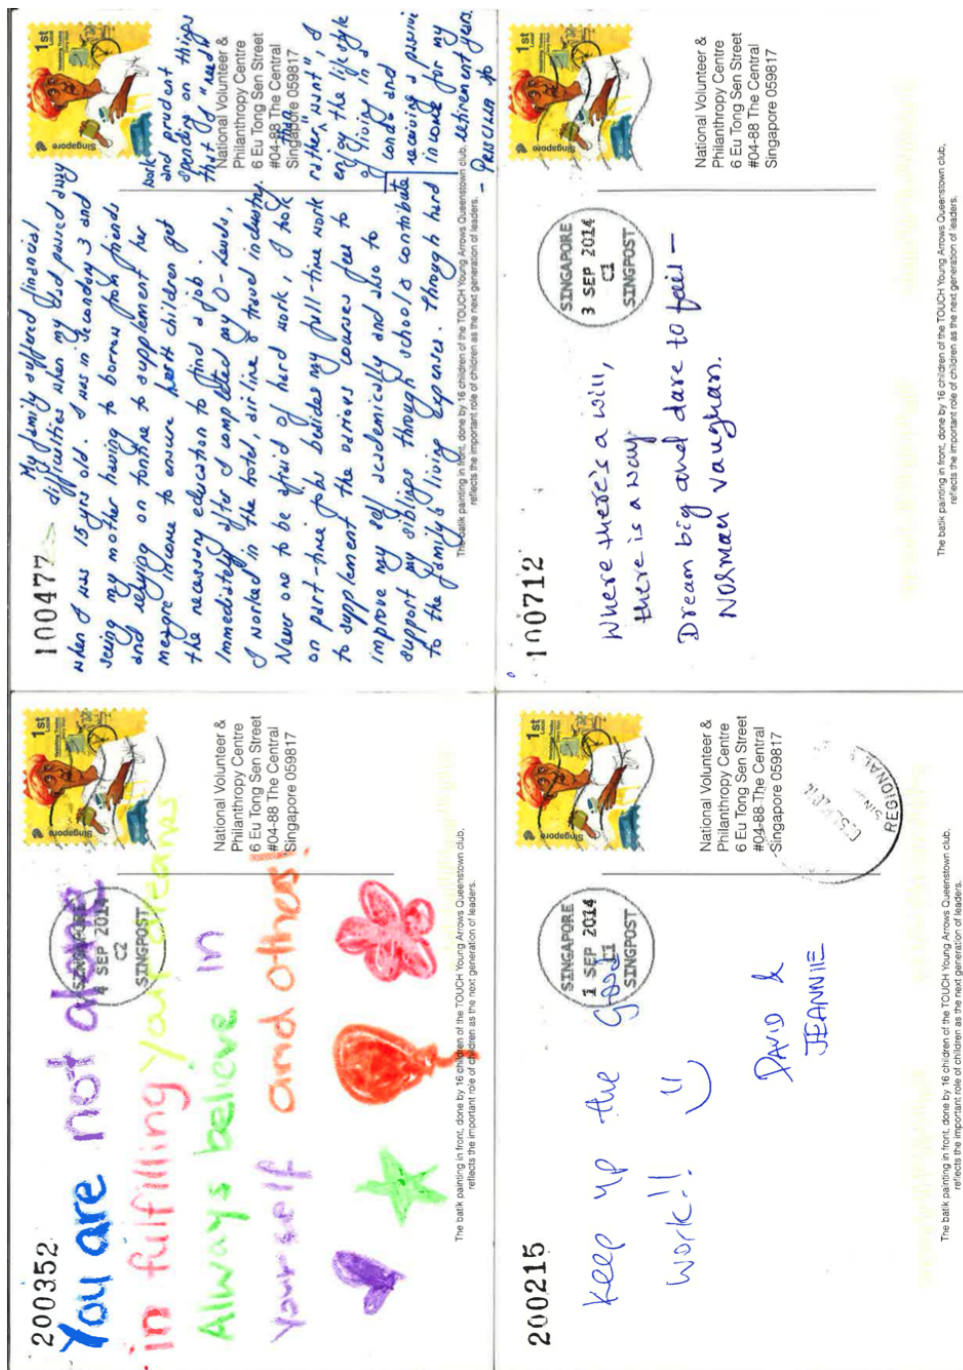 200352
You are not alone
in fulfilling your dreams
Always believe in
yourself and others!
Singapore
1st
Local
SINGAPORE
4 SEP 2014
C2
SINGPOST
National Volunteer &
Philanthropy Centre
6 Eu Tong Sen Street
#04-88 The Central
Singapore 059817
The batik painting in front, done by 16 children of the TOUCH Young Arrows Queenstown club,
reflects the important role of children as the next generation of leaders.
100477
My family suffered financial
difficulties when my Dad passed away
when I was 15 yrs old. I was in Secondary 3 and
seeing my mother having to borrow from friends
and relying on tontine to supplement her
meagre income to ensure her children get
the necessary education to find a job.
Immediately after I completed my O-levels,
I worked in the hotel, airline & travel industry.
Never one to be afraid of hard work, I took
on part-time jobs besides my full-time work
to supplement the various courses fees to
improve my self academically and also to
support my siblings through school & contribute
to the family's living expenses. Through hard
work
and prudent
spending on things
that I "need"
rather than "want", I
enjoy the lifestyle
of living in a
condo and
receiving a passive
income for my
retirement years.
- PRISCILLA
Singapore
1st
Local
National Volunteer &
Philanthropy Centre
6 Eu Tong Sen Street
#04-88 The Central
Singapore 059817
The batik painting in front, done by 16 children of the TOUCH Young Arrows Queenstown club,
reflects the important role of children as the next generation of leaders.
200215
Keep up the good
work!!
DAVID &
JEANNIE
Singapore
1st
Local
SINGAPORE
1 SEP 2014
SINGPOST
National Volunteer &
Philanthropy Centre
6 Eu Tong Sen Street
#04-88 The Central
Singapore 059817
REGIONAL
The batik painting in front, done by 16 children of the TOUCH Young Arrows Queenstown club,
reflects the important role of children as the next generation of leaders.
100712
Where there's a will,
there is a way.
Dream big and dare to fail -
NORMAN VAUGHAN.
1st
Local
SINGAPORE
3 SEP 2014
C1
SINGPOST
National Volunteer &
Philanthropy Centre
6 Eu Tong Sen Street
#04-88 The Central
Singapore 059817
The batik painting in front, done by 16 children of the TOUCH Young Arrows Queenstown club,
reflects the important role of children as the next generation of leaders.